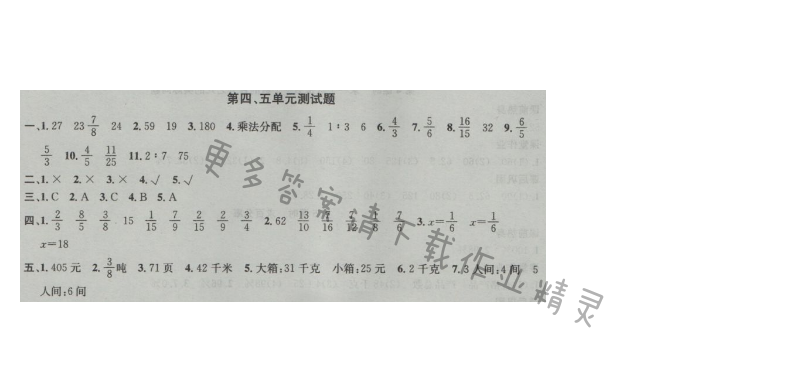 第四、五单元测试题
一、1. 27 23 7/8 24 2. 59 19 3. 180 4. 乘法分配 5. 1/4 1∶3 6 6. 4/3 7. 5/6 8. 16/15 32 9. 6/5
5/3 10. 4/5 11/25 11. 2∶7 75
二、1. × 2. × 3. × 4. √ 5. √
三、1. C 2. A 3. C 4. B 5. A
四、1. 2/3 8/5 3/8 15 1/15 7/9 2/15 2/9 3/4 2. 62 13/10 7/6 3. x=1/6 x=1/6
x=18
五、1. 405元 2. 3/8吨 3. 71页 4. 42千米 5. 大箱:31千克 小箱:25元 6. 2千克 7. 3人间:4间 5
人间:6间
更多答案请下载作业精灵